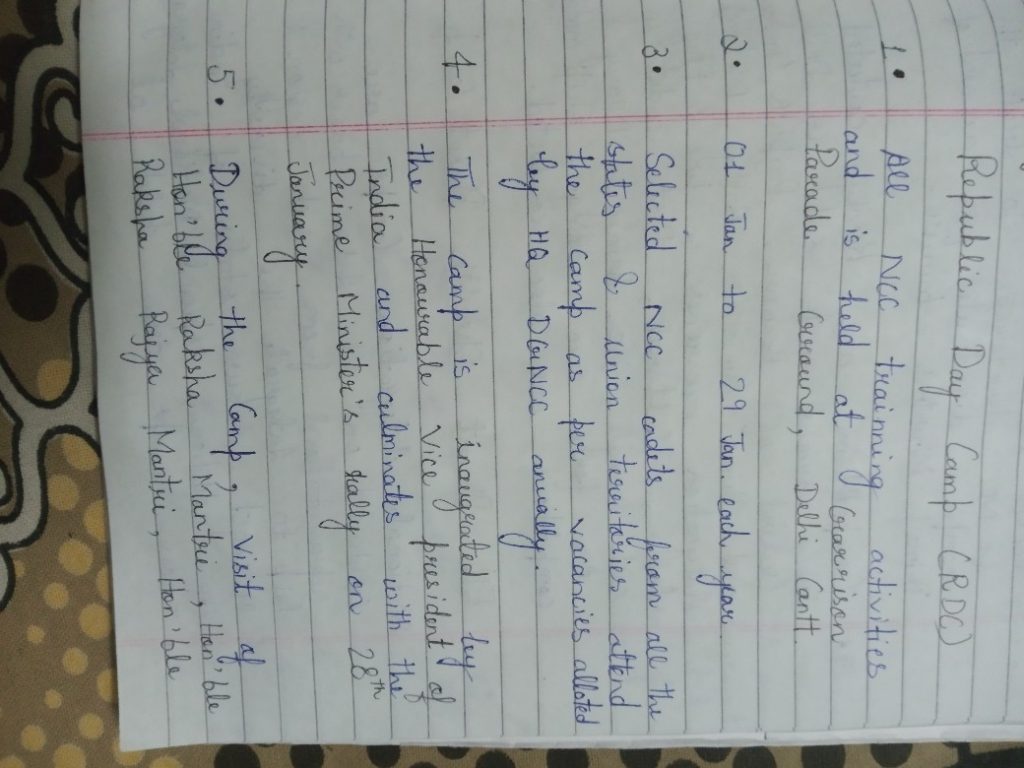 Republic Day Camp (RDC)
1. All NCC trainning activities
and is held at Garrison
Parade Ground, Delhi Cantt.
2. 01 Jan to 29 Jan. each year.
3. Selected NCC cadets from all the
states & union territories attend
the camp as per vacancies alloted
by HQ DGNCC anually.
4. The camp is inaugrated by
the Honourable Vice president of
India and culminates with the
Prime Minister's rally on 28th
January.
5. During the Camp, visit of
Hon'ble Raksha Mantri, Hon'ble
Raksha Rajya Mantri, Hon'ble